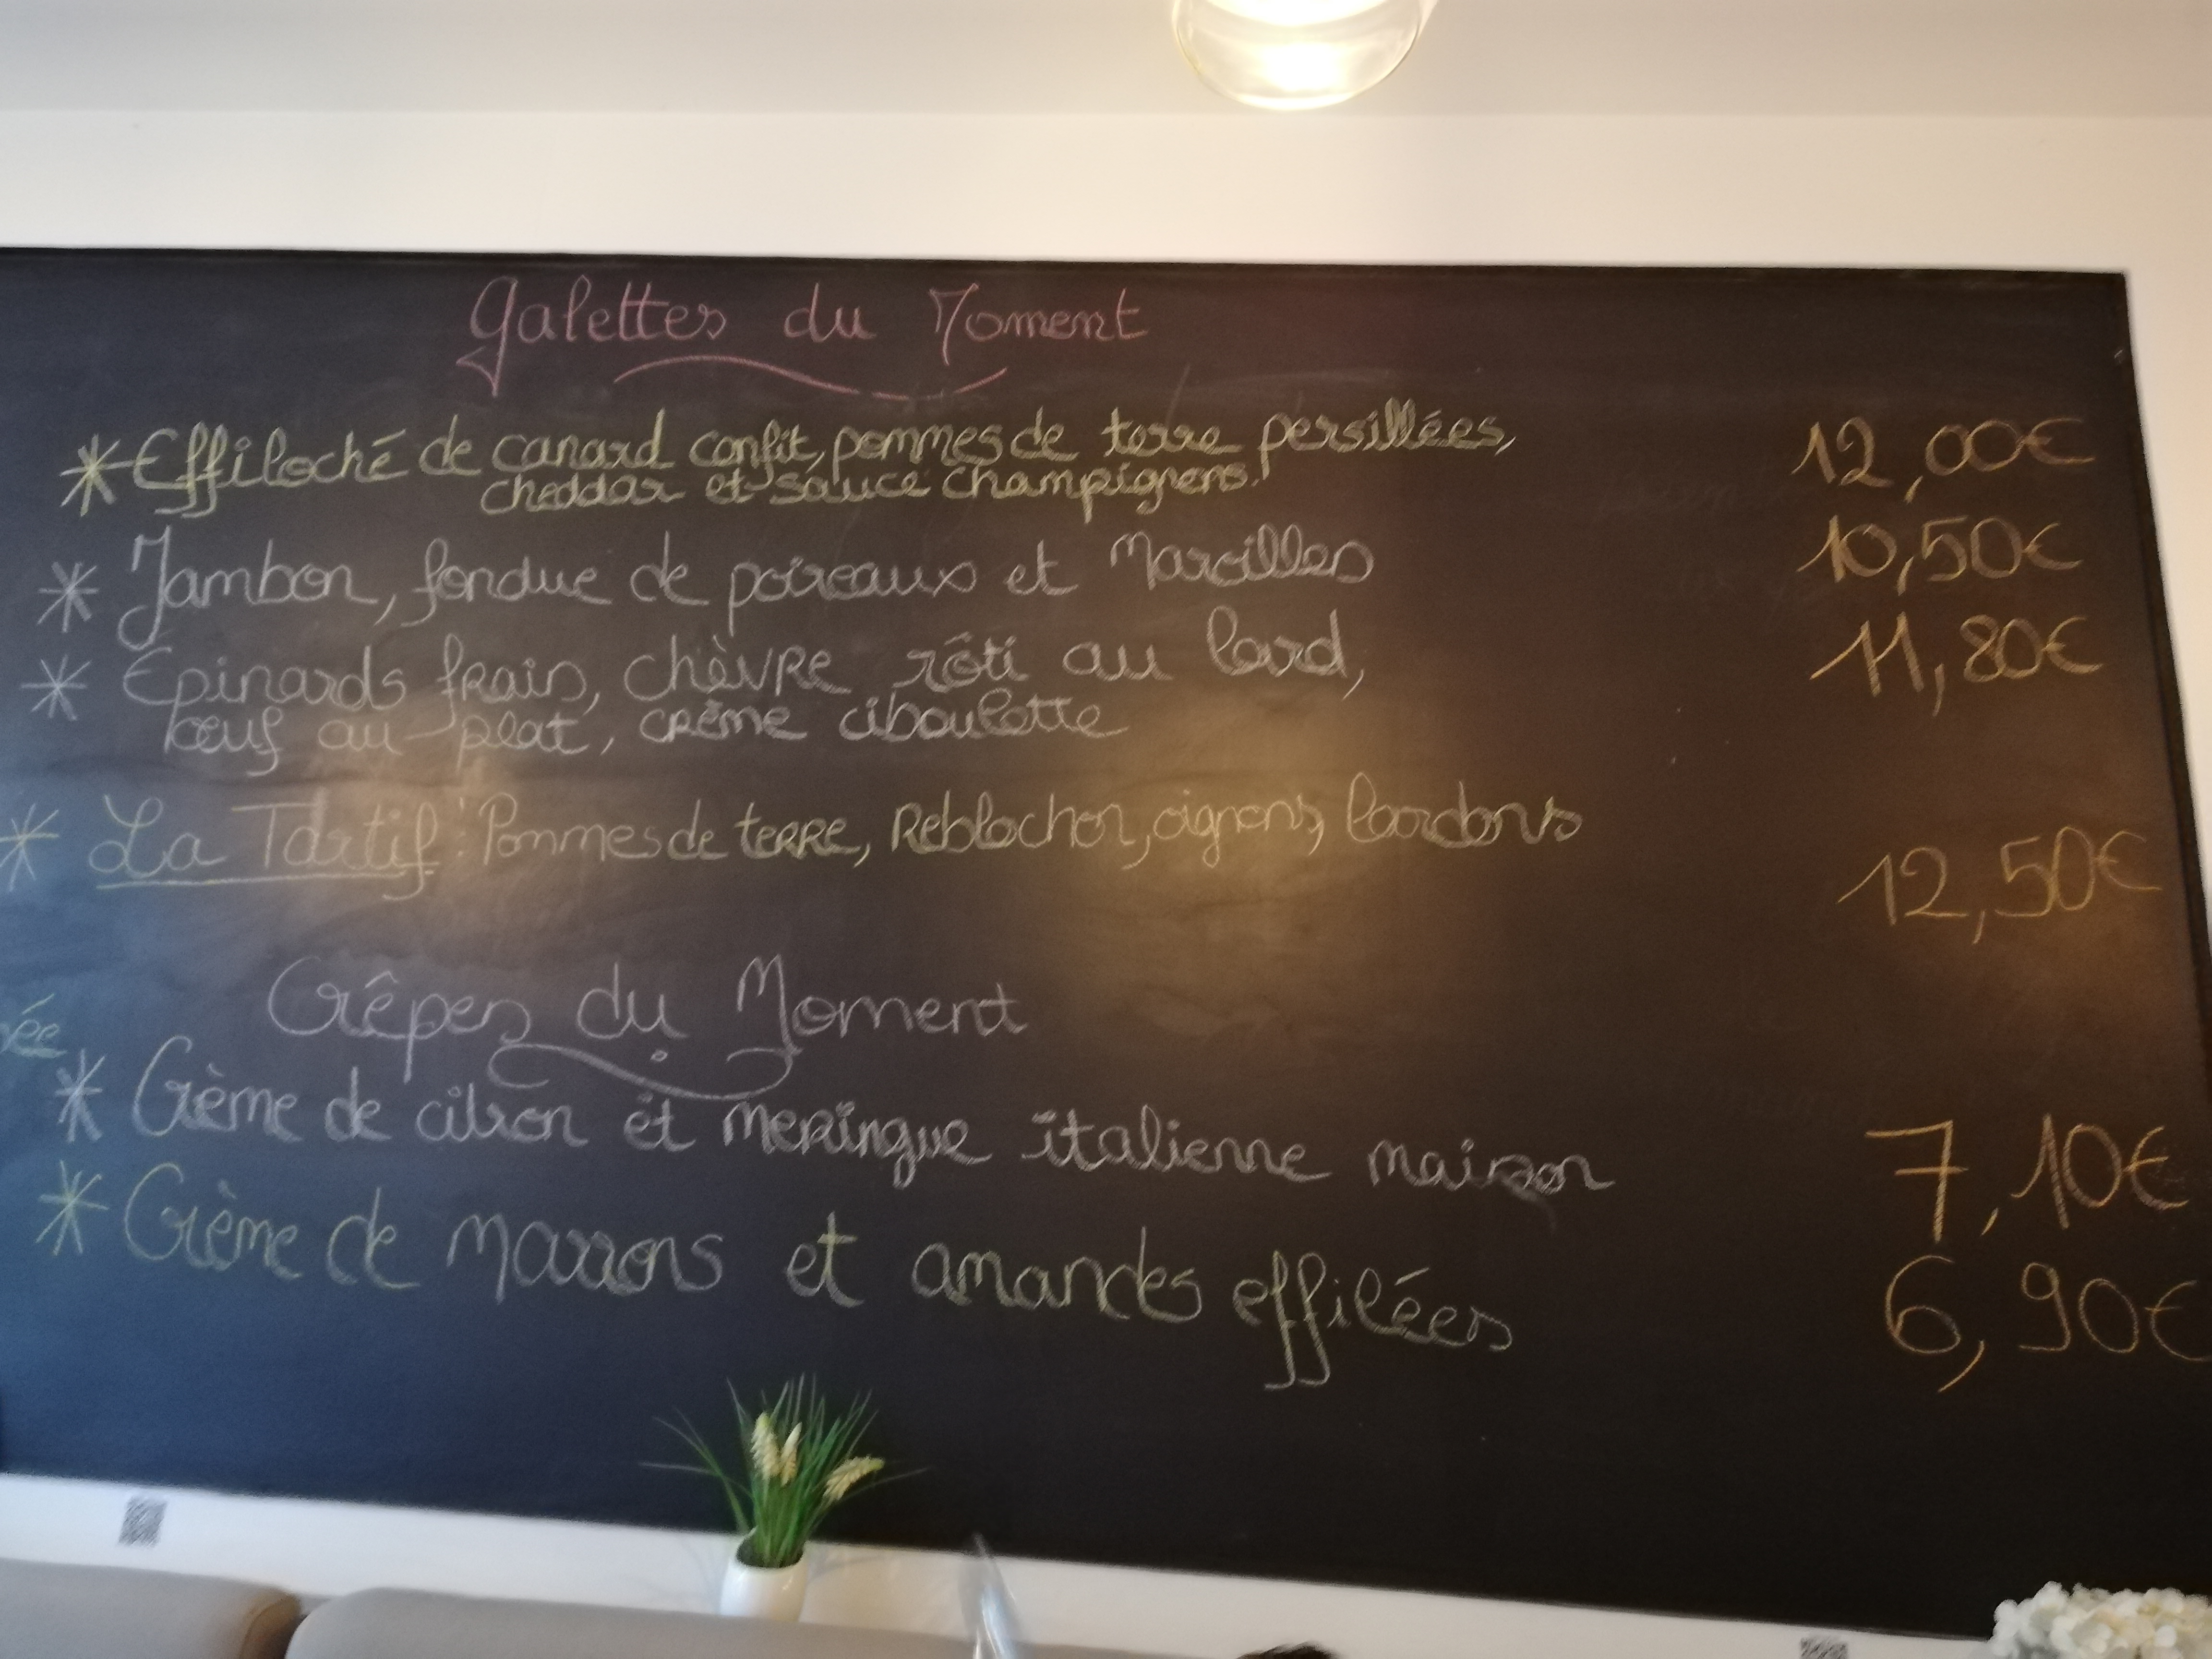 Galettes du Moment
* Effiloché de canard confit, pommes de terre persillées, 12,00€
cheddar et sauce champignons.
* Jambon, fondue de poireaux et Maroilles 10,50€
* Epinards frais, chèvre rôti au lard, 11,80€
œuf au plat, crème ciboulette
* La Tartif : Pommes de terre, Reblochon, oignons, lardons 12,50€
Crêpes du Moment
* Crème de citron et meringue italienne maison 7,10€
* Crème de Marrons et amandes effilées 6,90€